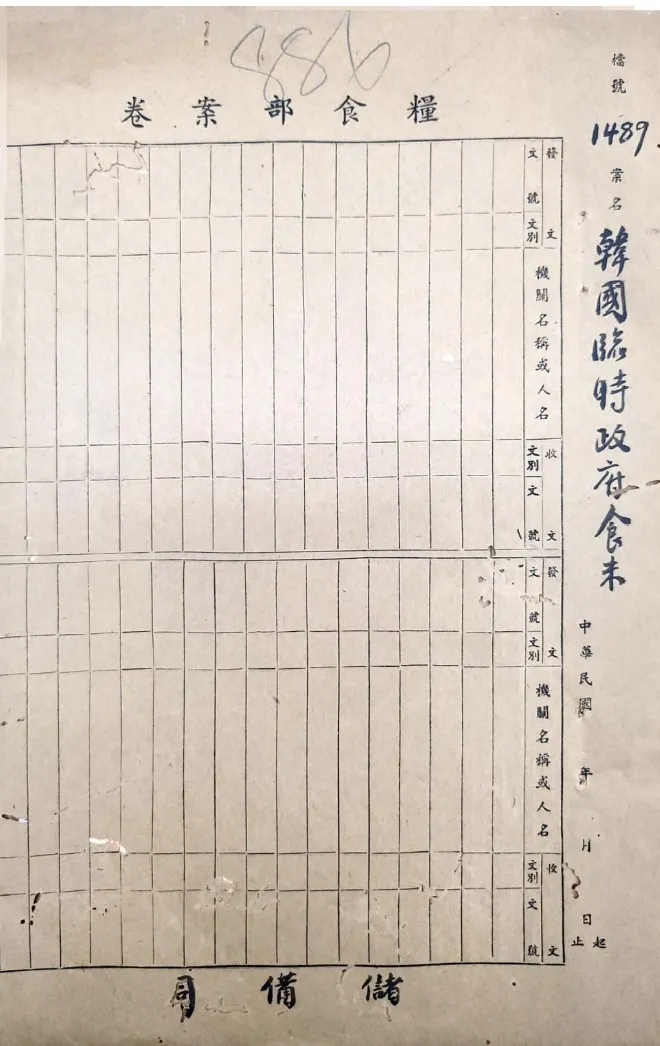 886
糧食部案卷
檔號
1489
案名
韓國臨時政府食米
中華民國 年 月 日 起 止
發文
文號
文別
機關名稱或人名
收文
文別
文號
發文
文號
文別
機關名稱或人名
收文
文別
文號
儲備司